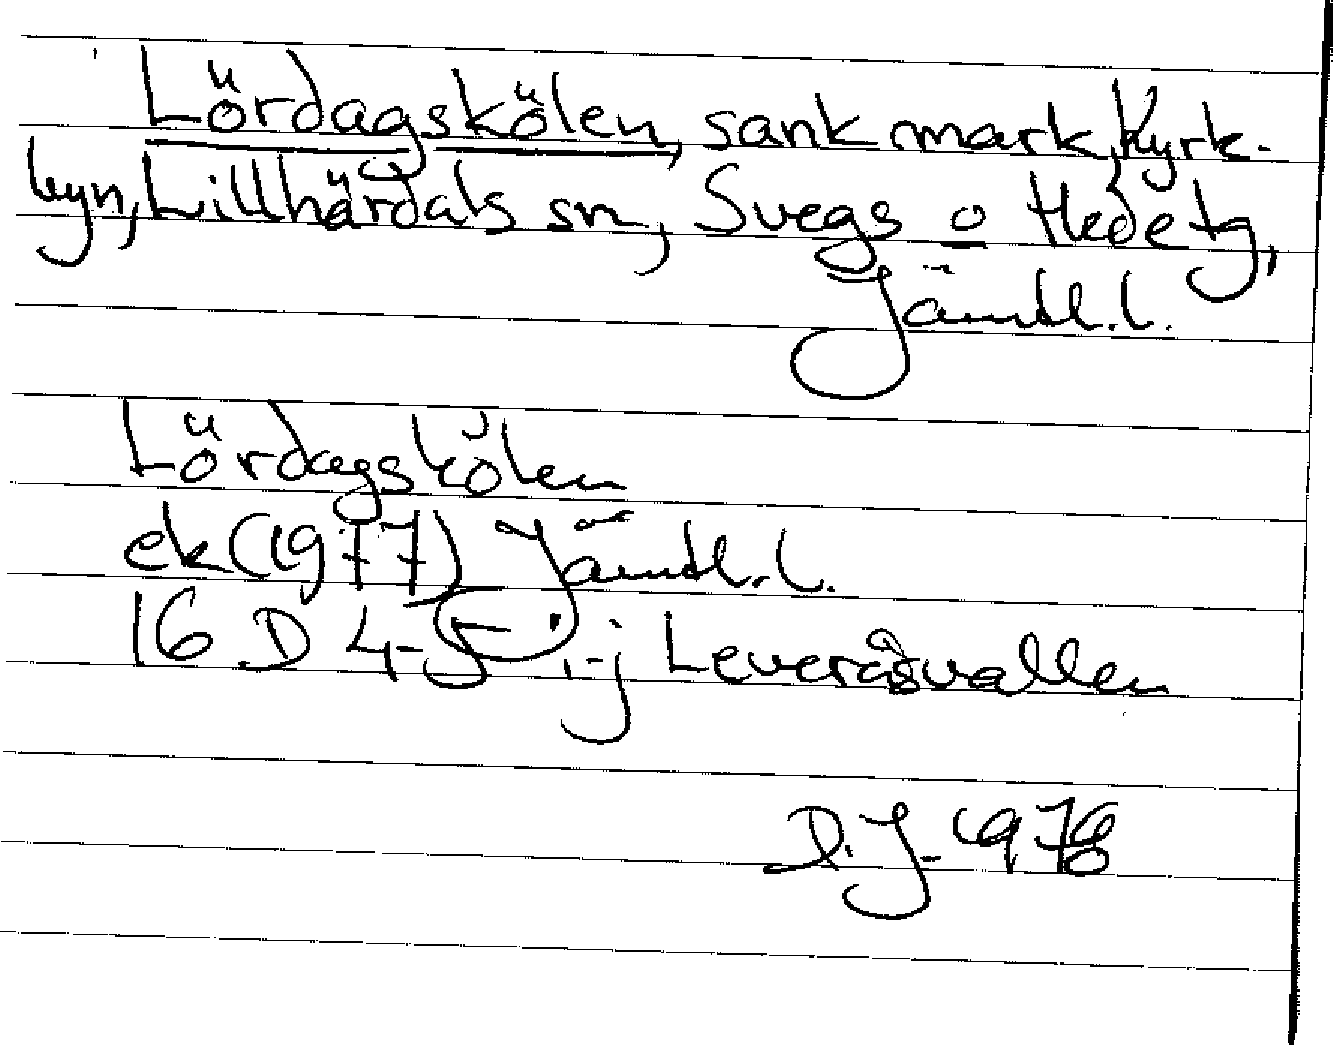 Lördagskölen, sank mark, Kyrk-
byn, Lillhärdals sn, Svegs o Hede tg,
Jämtl. l.
Lördagskölen
ek (1977) Jämtl. l.
16 D 4-5 i-j Leveråsvallen
D.J. 1978